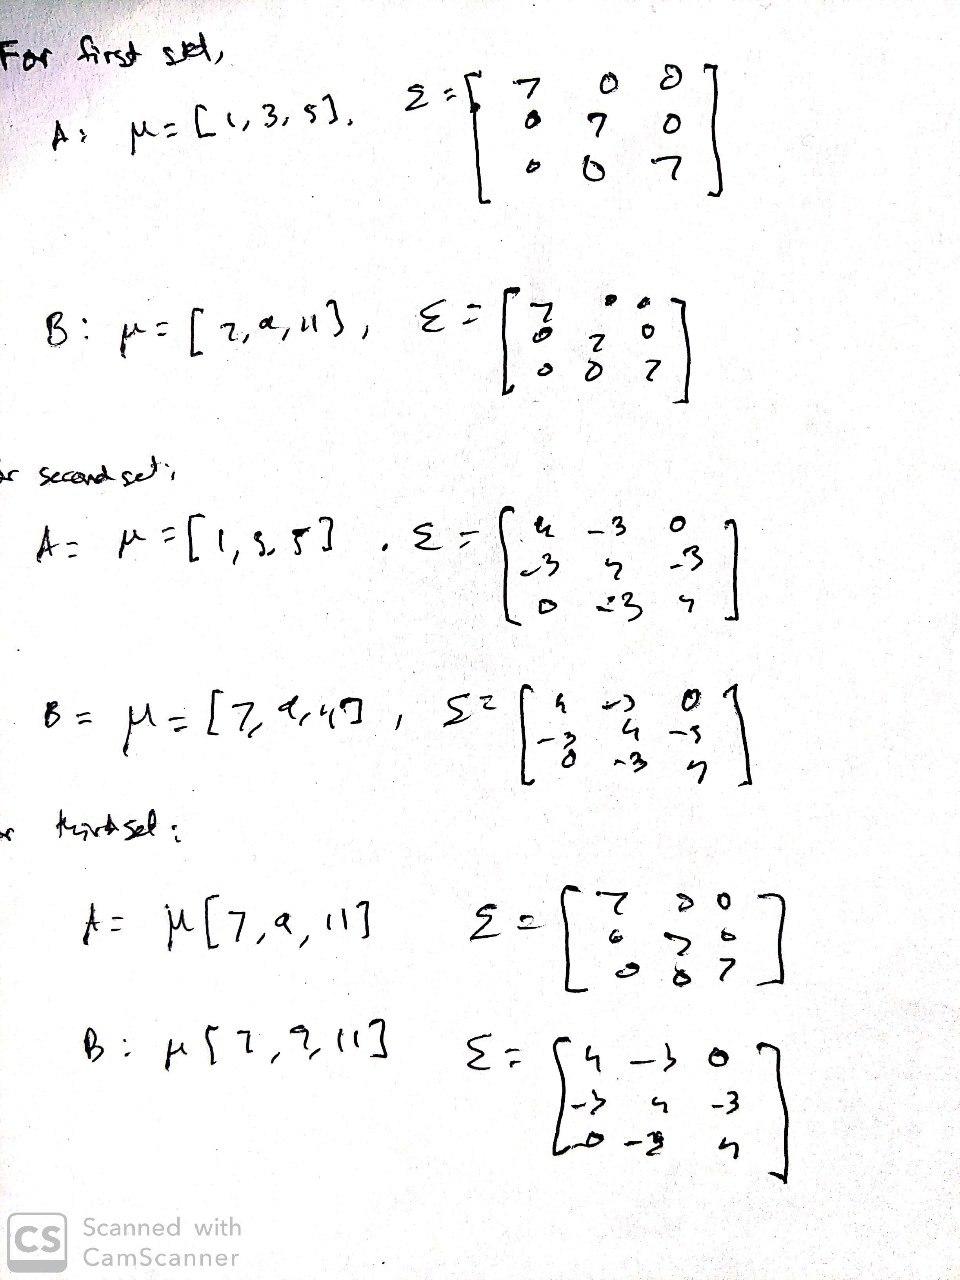 For first set,
A: μ = [1, 3, 5], Σ = [ 7 0 0
0 7 0
0 0 7 ]
B: μ = [7, 9, 11], Σ = [ 7 0 0
0 7 0
0 0 7 ]
second set:
A = μ = [1, 3, 5], Σ = [ 4 -3 0
-3 4 -3
0 -3 4 ]
B = μ = [7, 9, 11], Σ = [ 4 -3 0
-3 4 -3
0 -3 4 ]
third set:
A = μ [7, 9, 11] Σ = [ 7 0 0
0 7 0
0 0 7 ]
B: μ [7, 9, 11] Σ = [ 4 -3 0
-3 4 -3
0 -3 4 ]
CS Scanned with
CamScanner